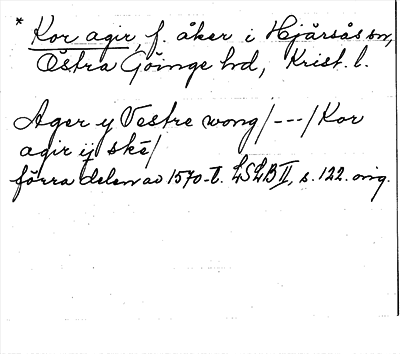 * Kor agir, f. åker i Hjärsås sn,
Östra Göinge hd, Krist. l.
Ager y Vestre wong/---/Kor
agir ij skē/
förra delen av 1570-t. LSLB II, s. 122. orig.